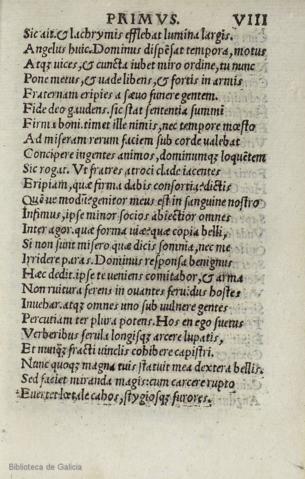 PRIMVS. VIII
Sic ait. & lachrymis efflebat lumina largis.
Angelus huic. Dominus dispēsat tempora, motus
Atqȝ vices, & cuncta iubet miro ordine, tu nunc
Pone metus, & vade libens, & fortis in armis
Fraternam eripies a sæuo funere gentem.
Fide deo gaudens. sic stat sententia summi
Firma boni. timet ille nimis, nec tempore mœsto
Ad miseram rerum faciem sub corde valebat
Concipere ingentes animos, dominumqȝ loquētem
Sic rogat. Vt fratres atroci clade iacentes
Eripiam, quæ firma dabis consortia dictis
Quāue modū? genitor meus est in sanguine nostro
Infimus, ipse minor socios abiectior omnes
Inter agor. quæ forma viæ? quæ copia belli,
Si non sunt misero quæ dicis somnia, nec me
Irridere paras. Dominus responsa benignus
Hæc dedit. ipse te veniens comitabor, & arma
Non ruitura ferens in ouantes feruidus hostes
Inuehar. atqȝ omnes uno sub vulnere gentes
Percutiam ter plura potens. Hos en ego suetus
Verberibus ferula longisqȝ arcere lupatis,
Et nunqȝ fracti vinclis cohibere capistri.
Nunc quoqȝ magna tuis statuit mea dextera bellis.
Sed faciet miranda magis: cum carcere rupto
Euertet lœtale cahos, stygiosqȝ furores.
Biblioteca de Galicia